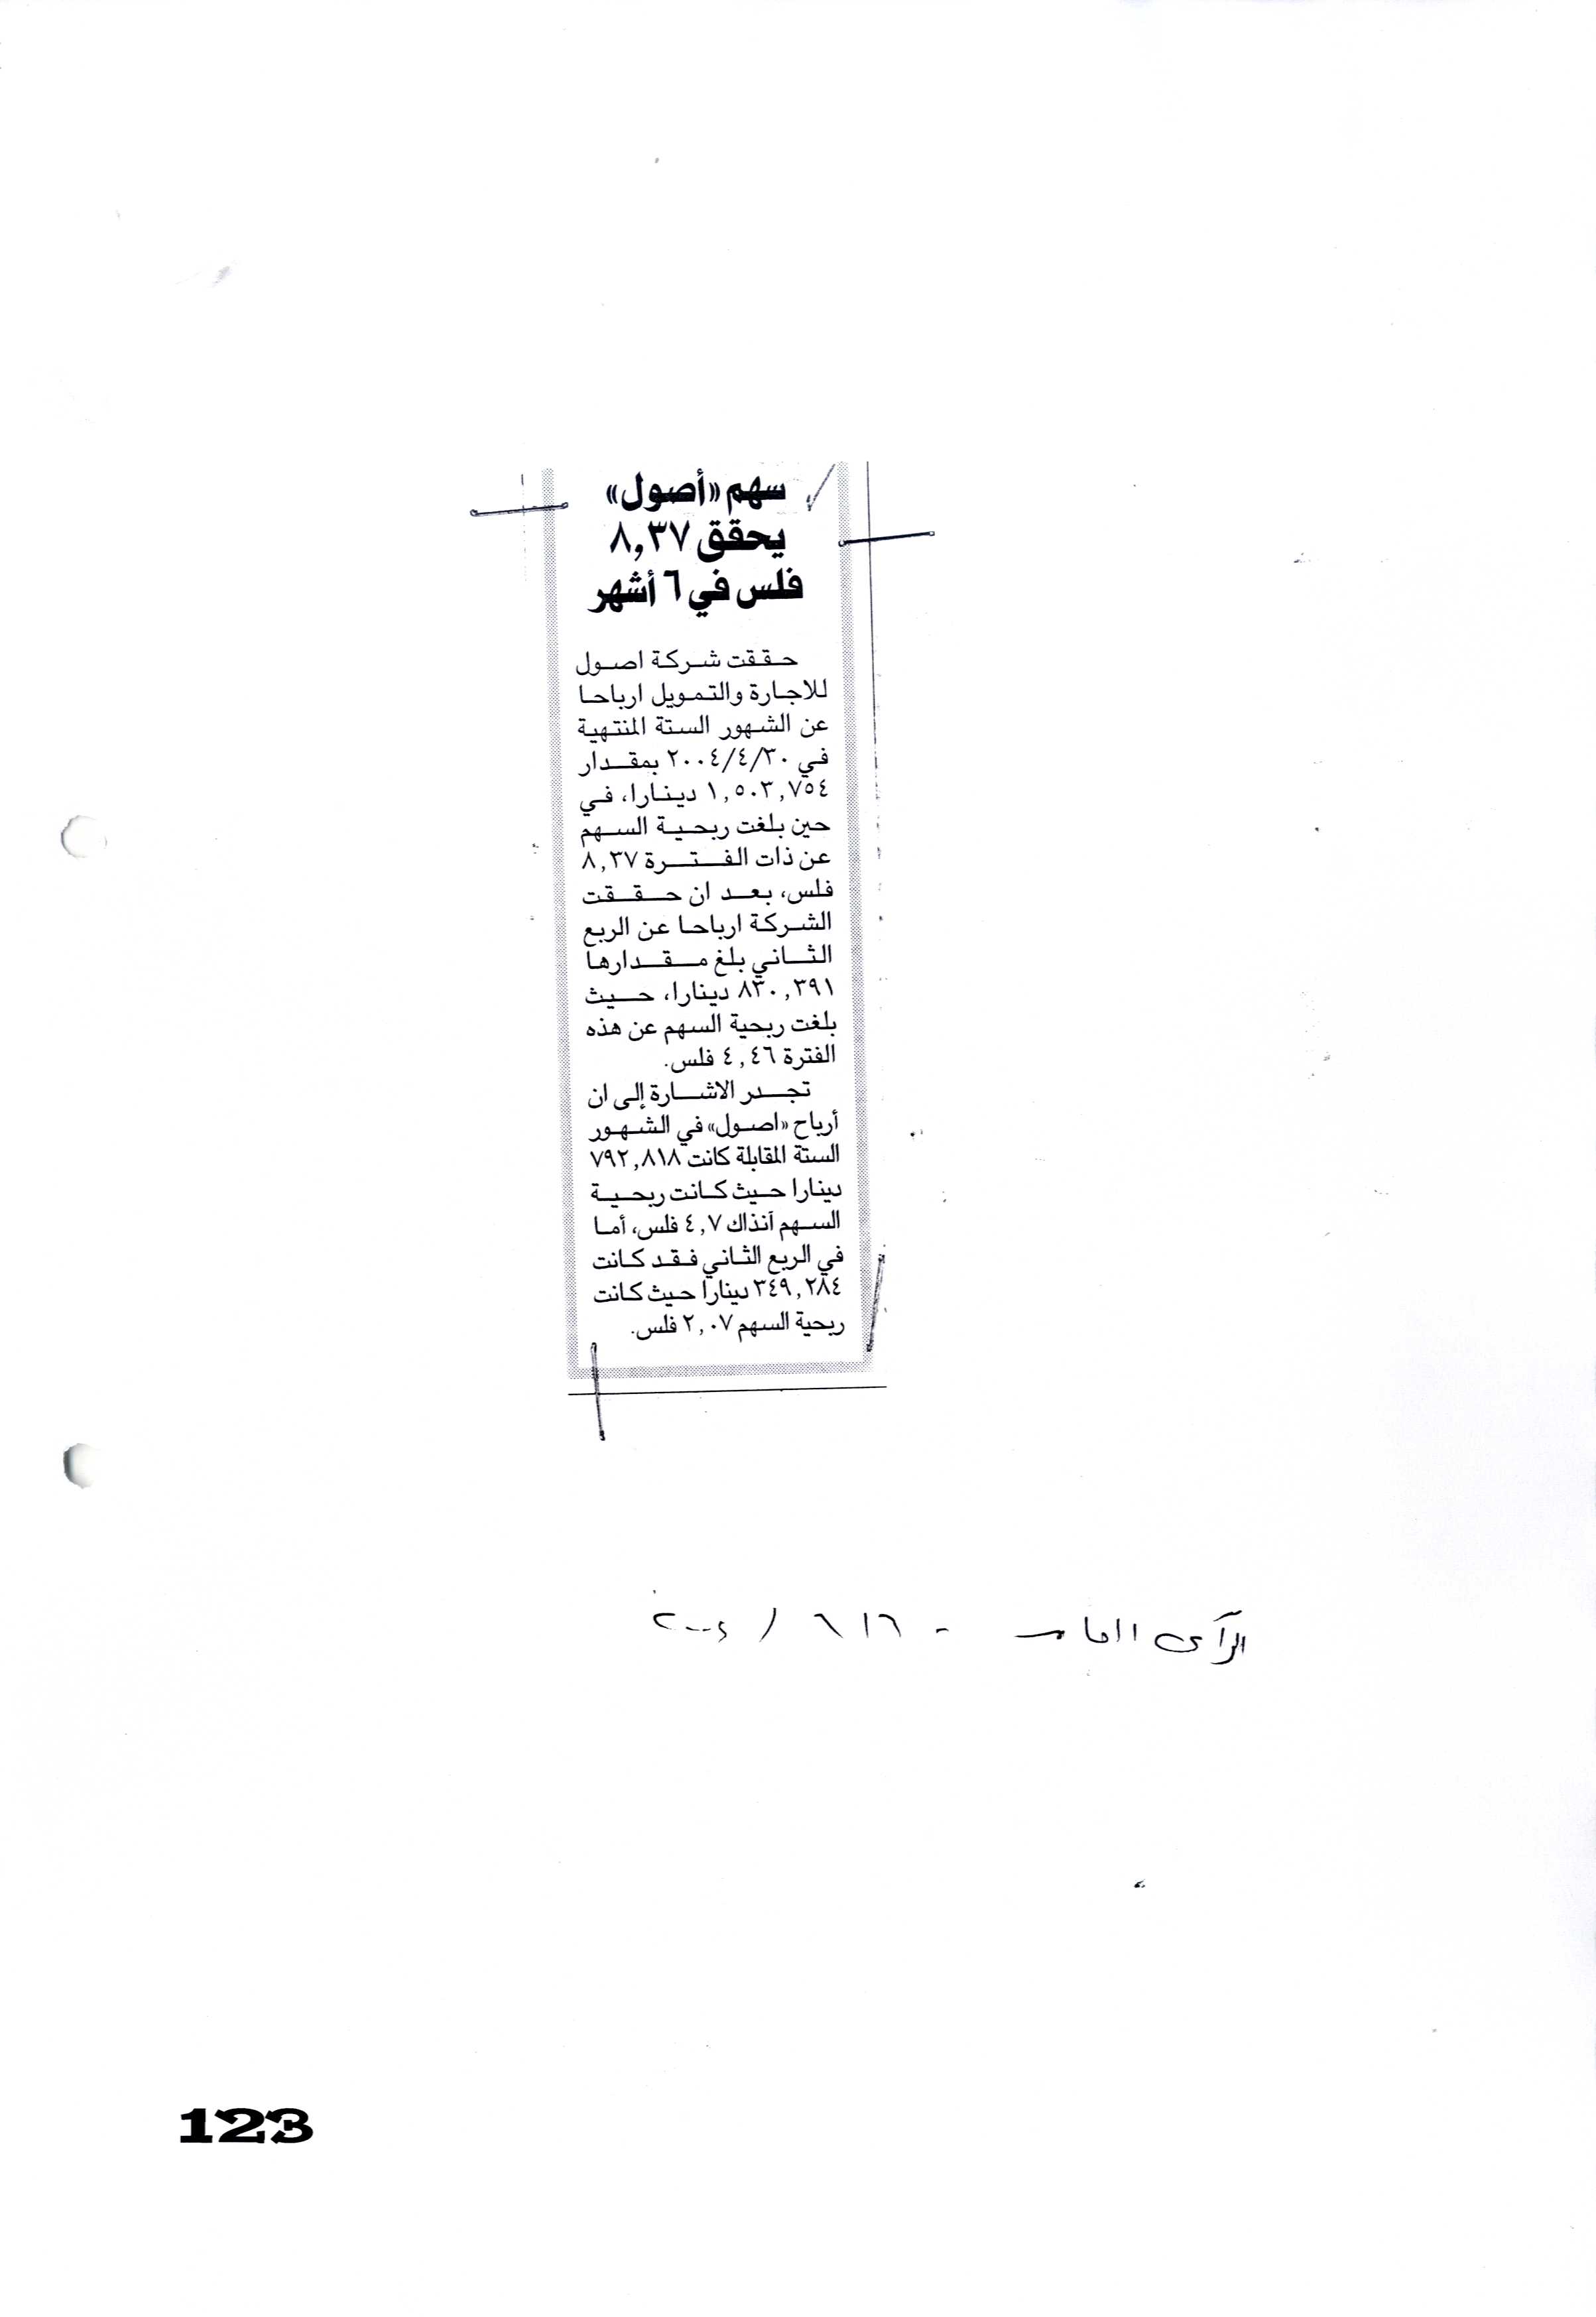 سهم «أصول»
يحقق ٨,٣٧
فلس في ٦ أشهر
حققت شركة اصول
للاجارة والتمويل ارباحا
عن الشهور الستة المنتهية
في ٢٠٠٤/٤/٣٠ بمقدار
١,٥٠٣,٧٥٤ دينارا، في
حين بلغت ربحية السهم
عن ذات الفترة ٨,٣٧
فلس، بعد ان حققت
الشركة ارباحا عن الربع
الثاني بلغ مقدارها
٨٣٠,٣٩١ دينارا، حيث
بلغت ربحية السهم عن هذه
الفترة ٤,٤٦ فلس.
تجدر الاشارة إلى ان
أرباح «اصول» في الشهور
الستة المقابلة كانت ٧٩٢,٨١٨
دينارا حيث كانت ربحية
السهم آنذاك ٤,٧ فلس، أما
في الربع الثاني فقد كانت
٣٤٩,٢٨٤ دينارا حيث كانت
ربحية السهم ٢,٠٧ فلس.
الرأى العام - ٦ / ٦ / ٢٠٠٤
123